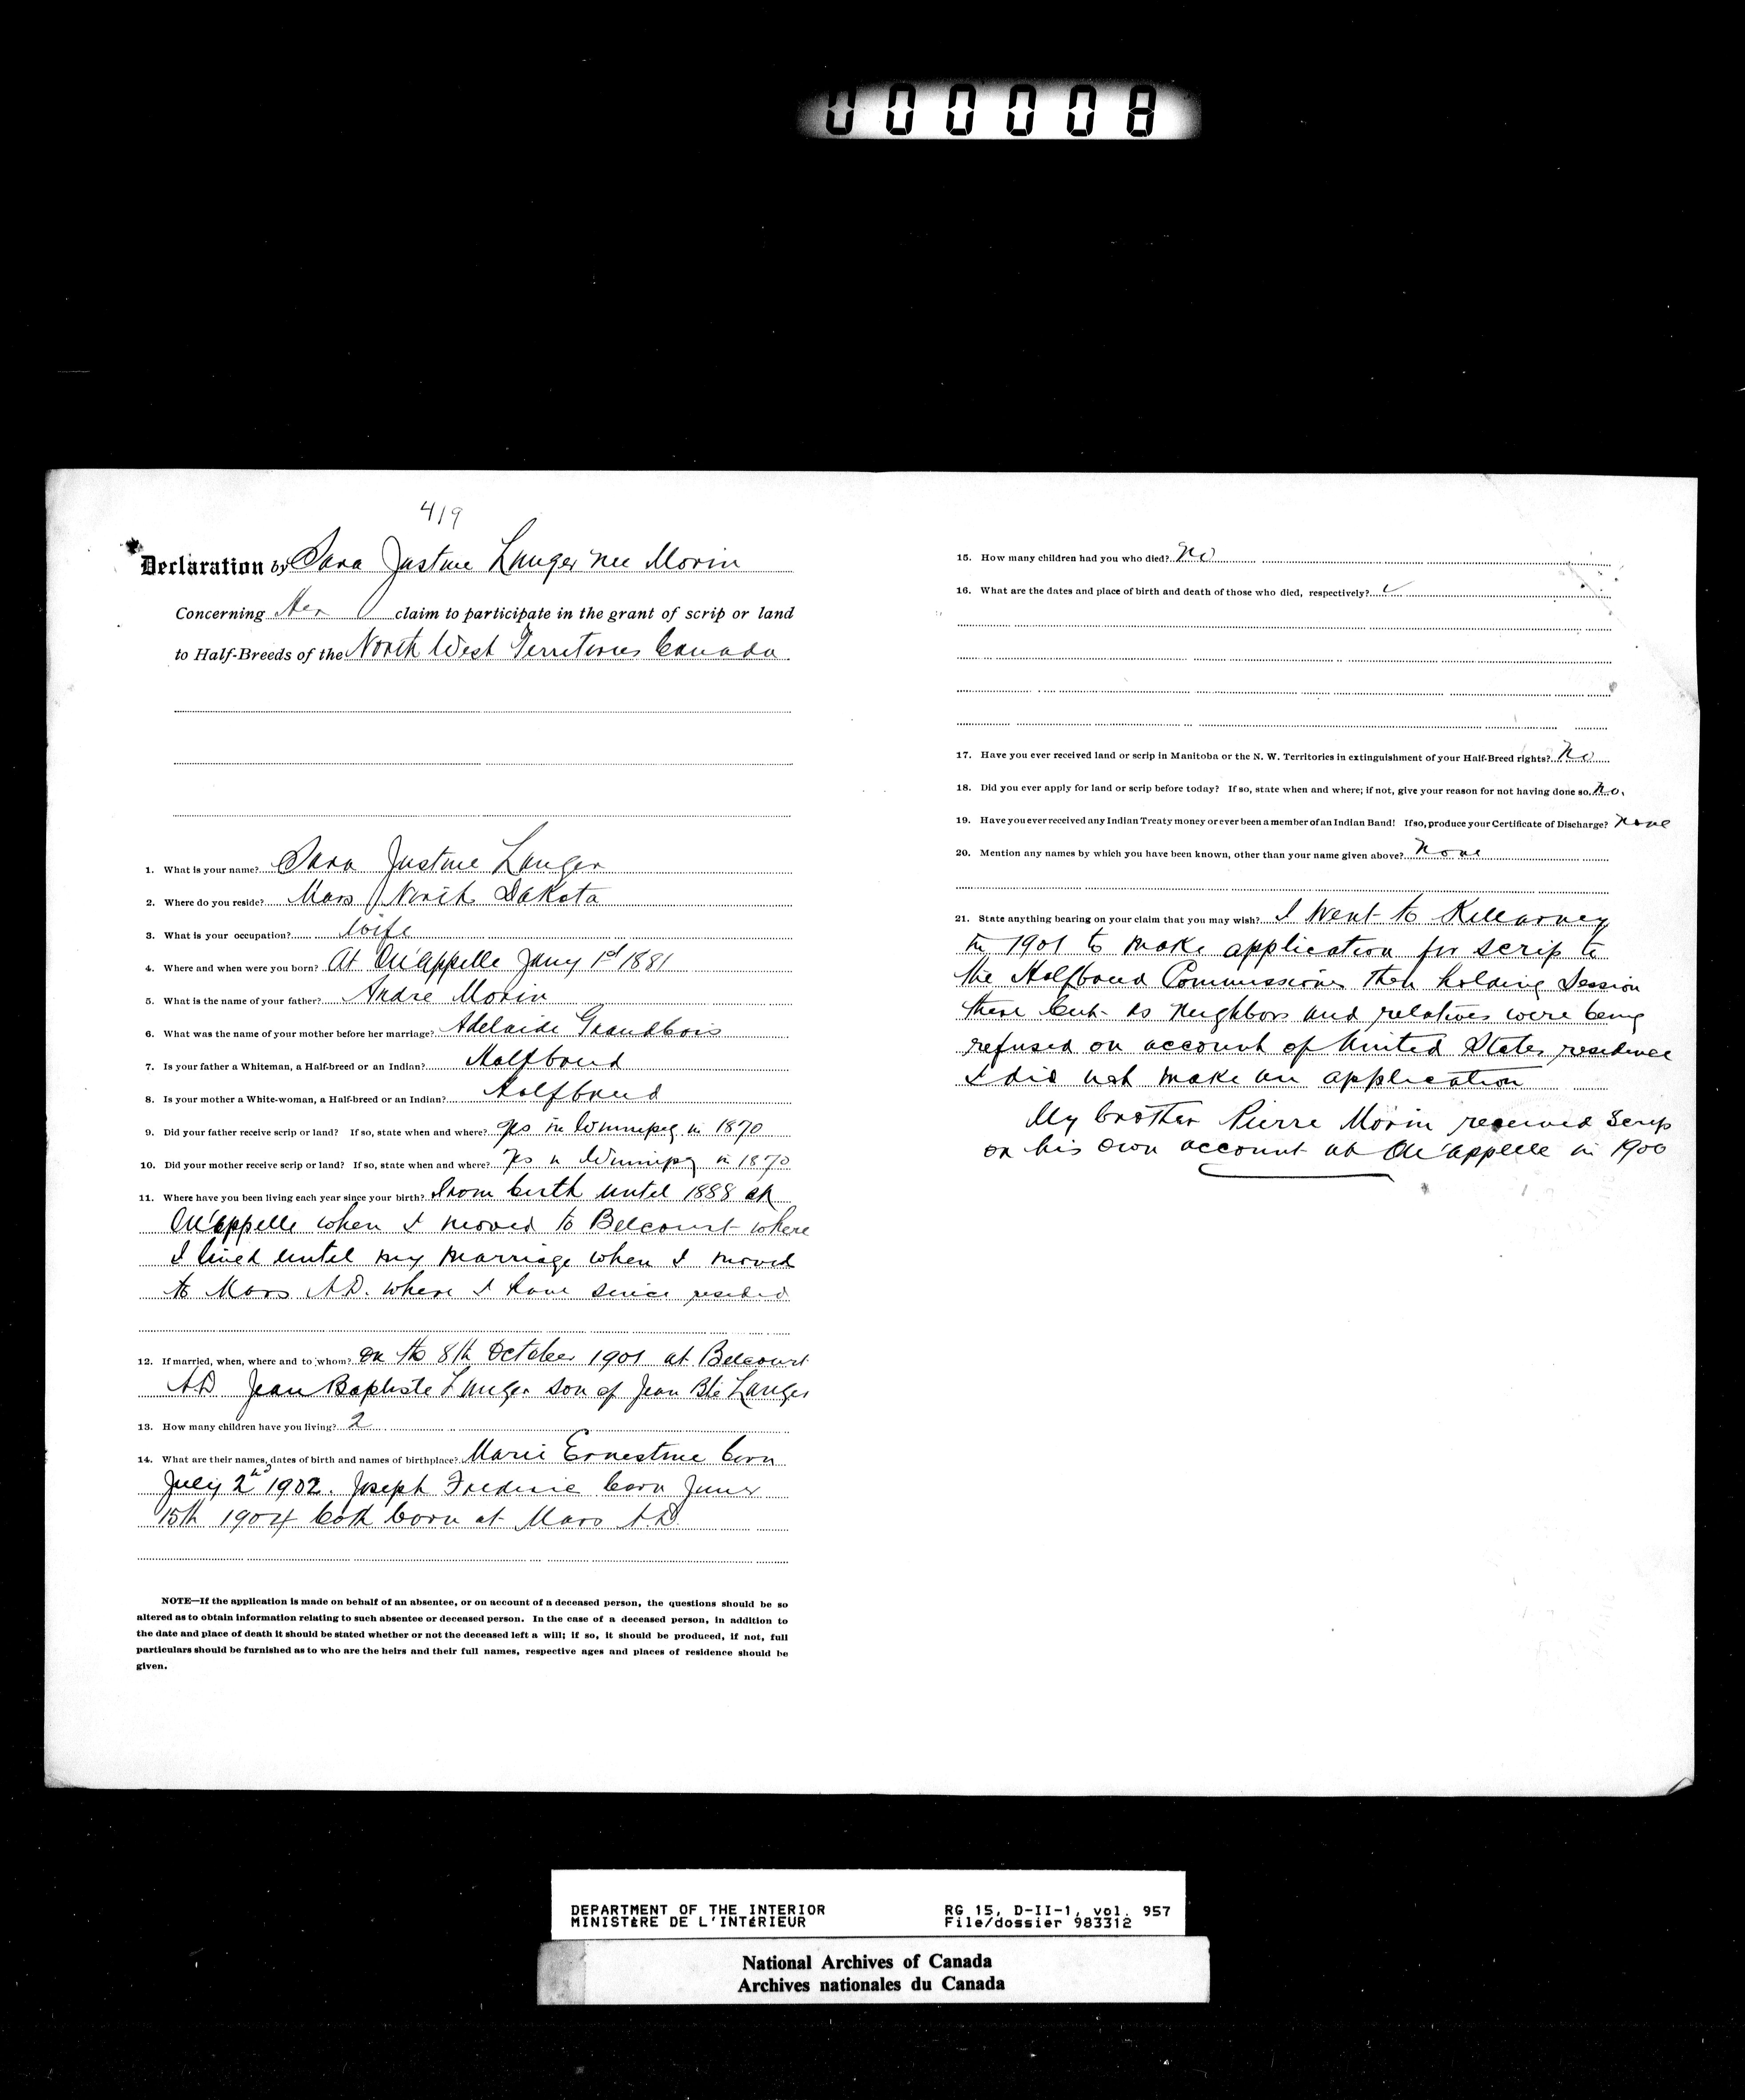 000008
419
Declaration by Sara Justine Langer nee Morin
Concerning Her claim to participate in the grant of scrip or land
to Half-Breeds of the North West Territories Canada
1. What is your name? Sara Justine Langer
2. Where do you reside? Maro North Dakota
3. What is your occupation? Wife
4. Where and when were you born? At Qu'appelle Jany 1st 1881
5. What is the name of your father? Andre Morin
6. What was the name of your mother before her marriage? Adelaide Grandbois
7. Is your father a Whiteman, a Half-breed or an Indian? Halfbreed
8. Is your mother a White-woman, a Half-breed or an Indian? Halfbreed
9. Did your father receive scrip or land? If so, state when and where? Yes in Winnipeg in 1870
10. Did your mother receive scrip or land? If so, state when and where? Yes in Winnipeg in 1870
11. Where have you been living each year since your birth? From birth until 1888 at
Qu'appelle when I moved to Belcourt where
I lived until my marriage when I moved
to Maro N.D. where I have since resided
12. If married, when, where and to whom? On the 8th October 1901 at Belcourt
N.D Jean Baptiste Langer son of Jean Bte Langer
13. How many children have you living? 2
14. What are their names, dates of birth and names of birthplace? Marie Ernestine born
July 2nd 1902. Joseph Frederic born June
15th 1904 both born at Maro N.D.
NOTE—If the application is made on behalf of an absentee, or on account of a deceased person, the questions should be so
altered as to obtain information relating to such absentee or deceased person. In the case of a deceased person, in addition to
the date and place of death it should be stated whether or not the deceased left a will; if so, it should be produced, if not, full
particulars should be furnished as to who are the heirs and their full names, respective ages and places of residence should be
given.
15. How many children had you who died? no
16. What are the dates and place of birth and death of those who died, respectively?
17. Have you ever received land or scrip in Manitoba or the N. W. Territories in extinguishment of your Half-Breed rights? No
18. Did you ever apply for land or scrip before today? If so, state when and where; if not, give your reason for not having done so. No.
19. Have you ever received any Indian Treaty money or ever been a member of an Indian Band! If so, produce your Certificate of Discharge? None
20. Mention any names by which you have been known, other than your name given above? None
21. State anything bearing on your claim that you may wish? I Went to Killarney
in 1901 to make application for scrip to
the Halfbreed Commissioner then holding Session
there but as Neighbors and relatives were being
refused on account of United States residence
I did not make an application
My brother Pierre Morin received Scrip
on his own account at Qu'appelle in 1900
DEPARTMENT OF THE INTERIOR
MINISTÈRE DE L'INTÉRIEUR
RG 15, D-II-1, vol. 957
File/dossier 983312
National Archives of Canada
Archives nationales du Canada